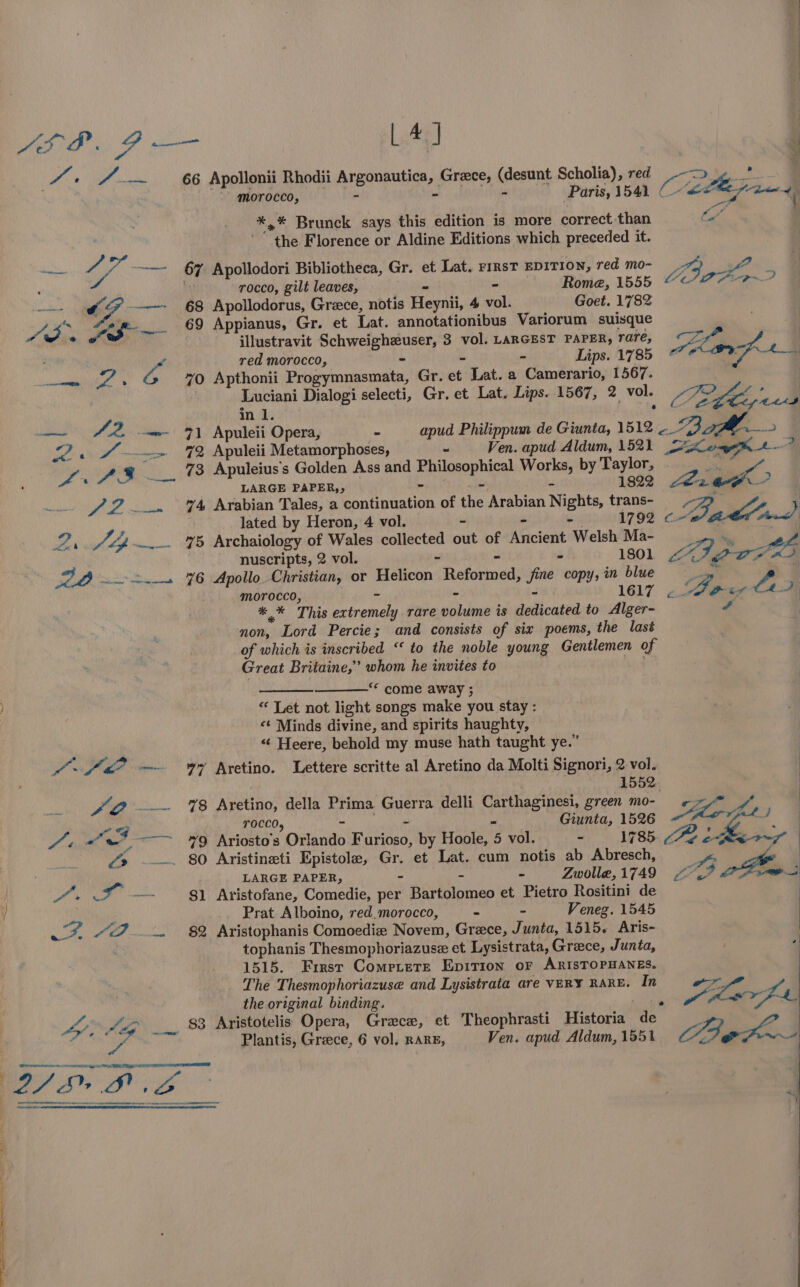 [ 4 ]
158. 9 —
1. 1 — 66 Apollonii Rhodii Argonautica, Græce, (desunt Scholia), red
morocco, - - - Paris, 1541
*,* Brunck says this edition is more correct than
the Florence or Aldine Editions which preceded it.
— 17 — 67 Apollodori Bibliotheca, Gr. et Lat. FIRST EDITION, red mo-
rocco, gilt leaves, - - Romæ, 1555 Bohn
68 Apollodorus, Græce, notis Heynii, 4 vol. Goet. 1782
69 Appianus, Gr. et Lat. annotationibus Variorum suisque
illustravit Schweighæuser, 3 vol. LARGEST PAPER, rare,
red morocco, - - - Lips. 1785
— 2. 6 70 Apthonii Progymnasmata, Gr. et Lat. a Camerario, 1567.
Luciani Dialogi selecti, Gr. et Lat. Lips. 1567, 2 vol.
in 1.
— 12 — 71 Apuleii Opera, - apud Philippum de Giunta, 1512 Bohn
2. 1 — 72 Apuleii Metamorphoses, - Ven. apud Aldum, 1521
1. 13 — 73 Apuleius's Golden Ass and Philosophical Works, by Taylor,
LARGE PAPER,, - - - 1822
— 12 — 74 Arabian Tales, a continuation of the Arabian Nights, trans-
lated by Heron, 4 vol. - - - 1792
2. 14 — 75 Archaiology of Wales collected out of Ancient Welsh Ma-
nuscripts, 2 vol. - - - 1801
20 — — 76 Apollo Christian, or Helicon Reformed, fine copy, in blue
morocco, - - - 1617
*,* This extremely rare volume is dedicated to Alger-
non, Lord Percie; and consists of six poems, the last
of which is inscribed “ to the noble young Gentlemen of
Great Britaine,” whom he invites to
“ come away ;
“ Let not light songs make you stay :
“ Minds divine, and spirits haughty,
“ Heere, behold my muse hath taught ye.”
1. 10 — 77 Aretino. Lettere scritte al Aretino da Molti Signori, 2 vol.
1552
10 — 78 Aretino, della Prima Guerra delli Carthaginesi, green mo-
rocco, - - - Giunta, 1526
1. 13 — 79 Ariosto's Orlando Furioso, by Hoole, 5 vol. - 1785
6 — 80 Aristinæti Epistolæ, Gr. et Lat. cum notis ab Abresch,
LARGE PAPER, - - - Zwollæ, 1749
1. 5 — 81 Aristofane, Comedie, per Bartolomeo et Pietro Rositini de
Prat Alboino, red morocco, - - Veneg. 1545
3. 10 — 82 Aristophanis Comoediæ Novem, Græce, Junta, 1515. Aris-
tophanis Thesmophoriazusæ et Lysistrata, Græce, Junta,
1515. FIRST COMPLETE EDITION OF ARISTOPHANES.
The Thesmophoriazusæ and Lysistrata are VERY RARE. In
the original binding.
4. 14 — 83 Aristotelis Opera, Græce, et Theophrasti Historia de
Plantis, Græce, 6 vol. RARE, Ven. apud Aldum, 1551 Bohn
218. 8. 6